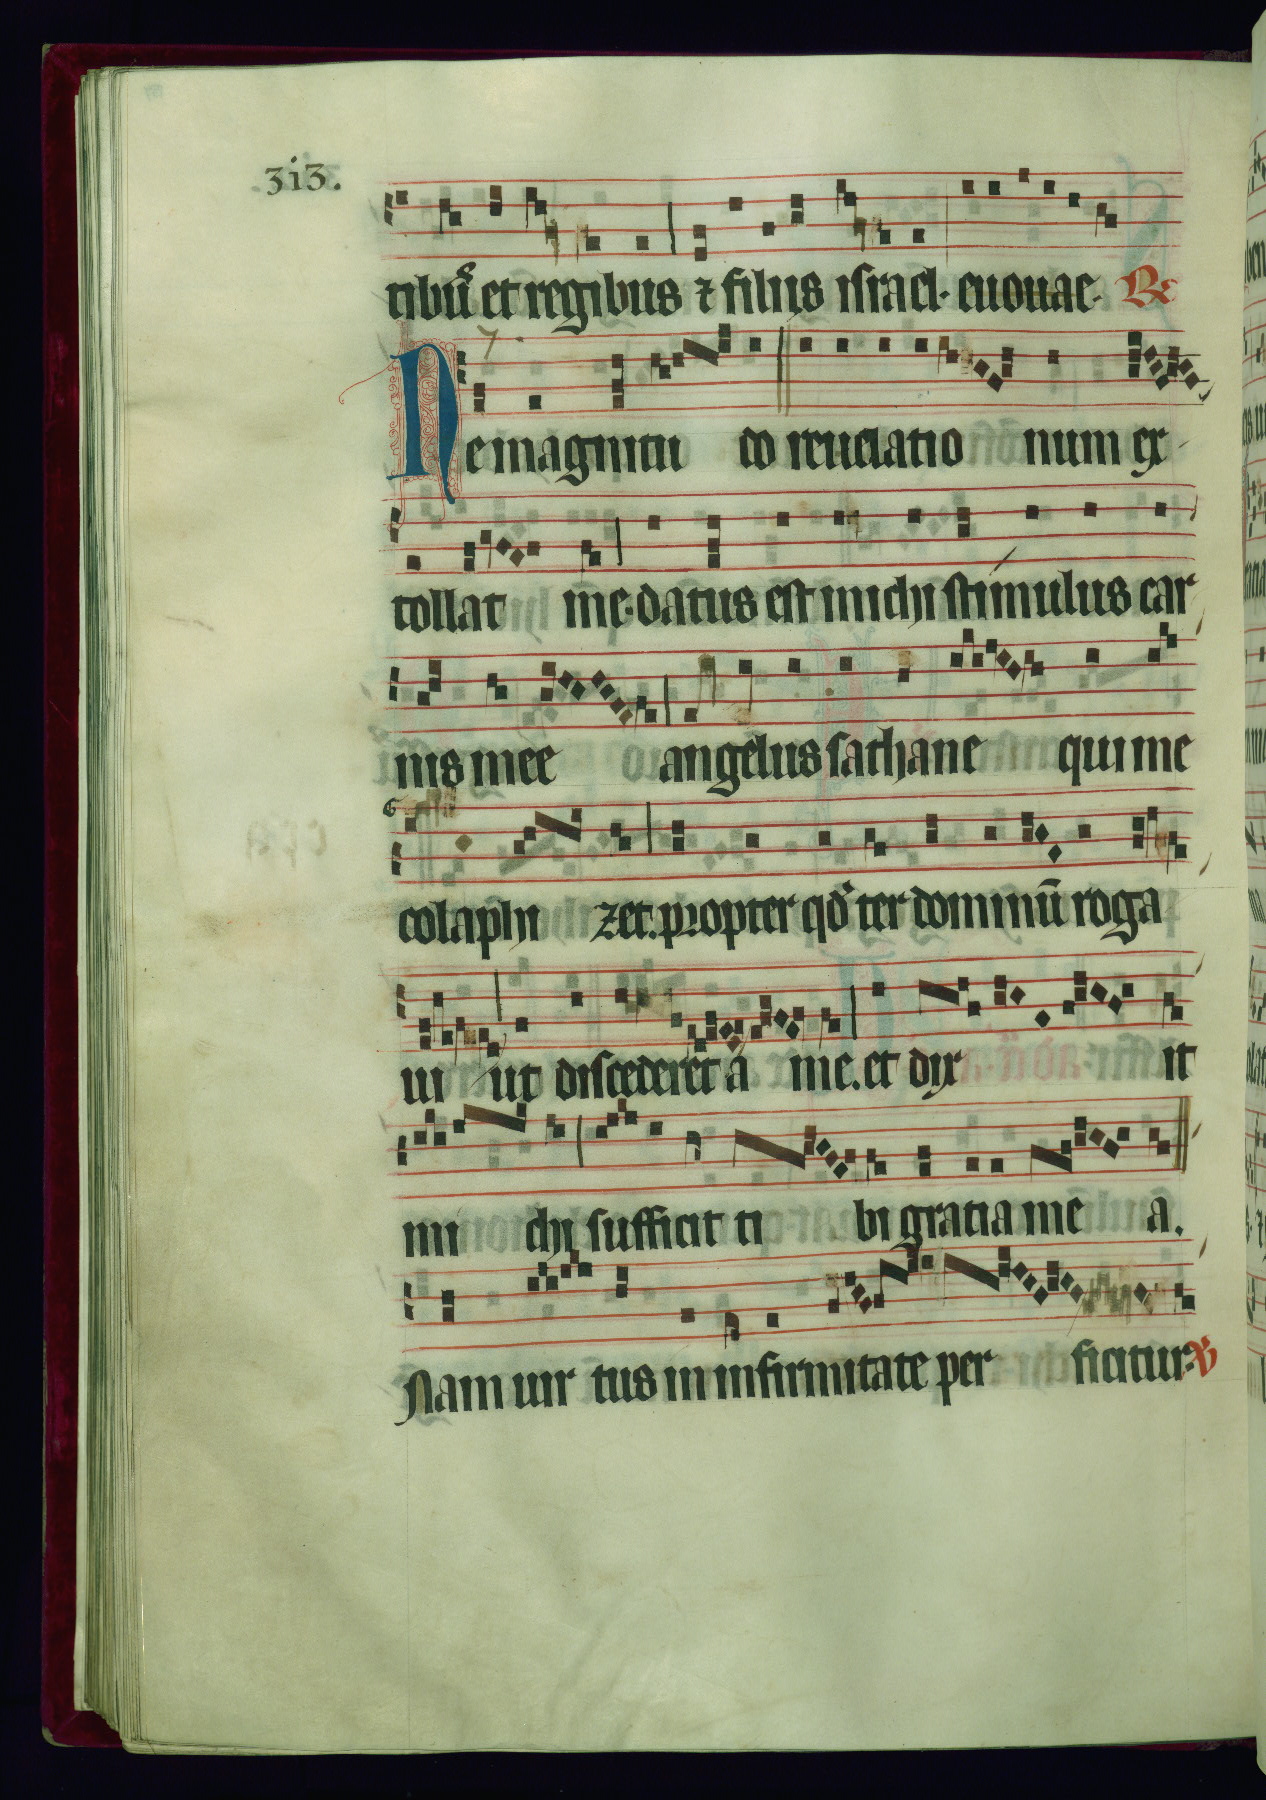 313.
tibꝰ et regibus ⁊ filiis israel· euouae· ℞
7.
Ne magnitu do reuelatio num ex
tollat me·datus est michi stimulus car
nis mee angelus sathane qui me
colaphi zet.propter qđ ter dominū roga
ui ut discederet a me.et dix it
mi chi sufficit ti bi gratia me a.
Nam uir tus in infirmitate per ficitur. ℣